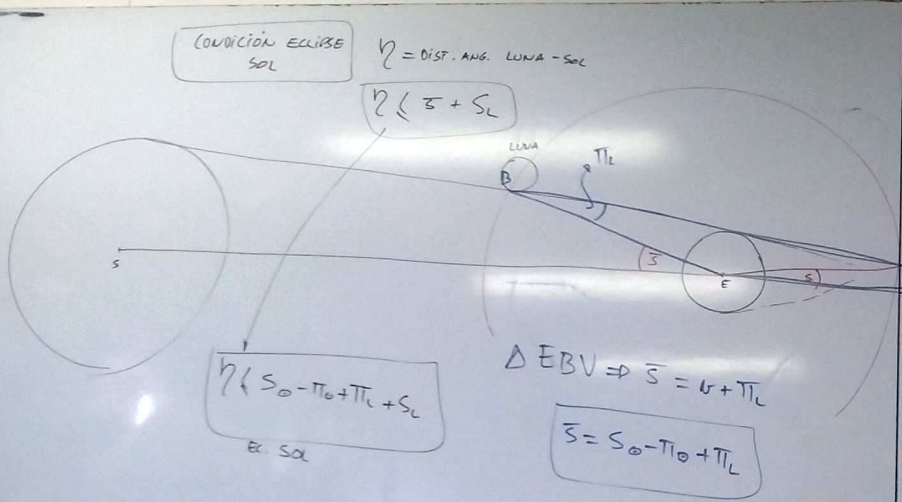 CONDICIÓN ECLIPSE
SOL
η = DIST. ANG. LUNA - SOL
η ≤ s̄ + S_L
LUNA
B
Π_L
s̄
S
E
s
η ≤ S_⊙ - Π_⊙ + Π_L + S_L
EC. SOL
Δ EBV ⇒ s̄ = v + Π_L
s̄ = S_⊙ - Π_⊙ + Π_L